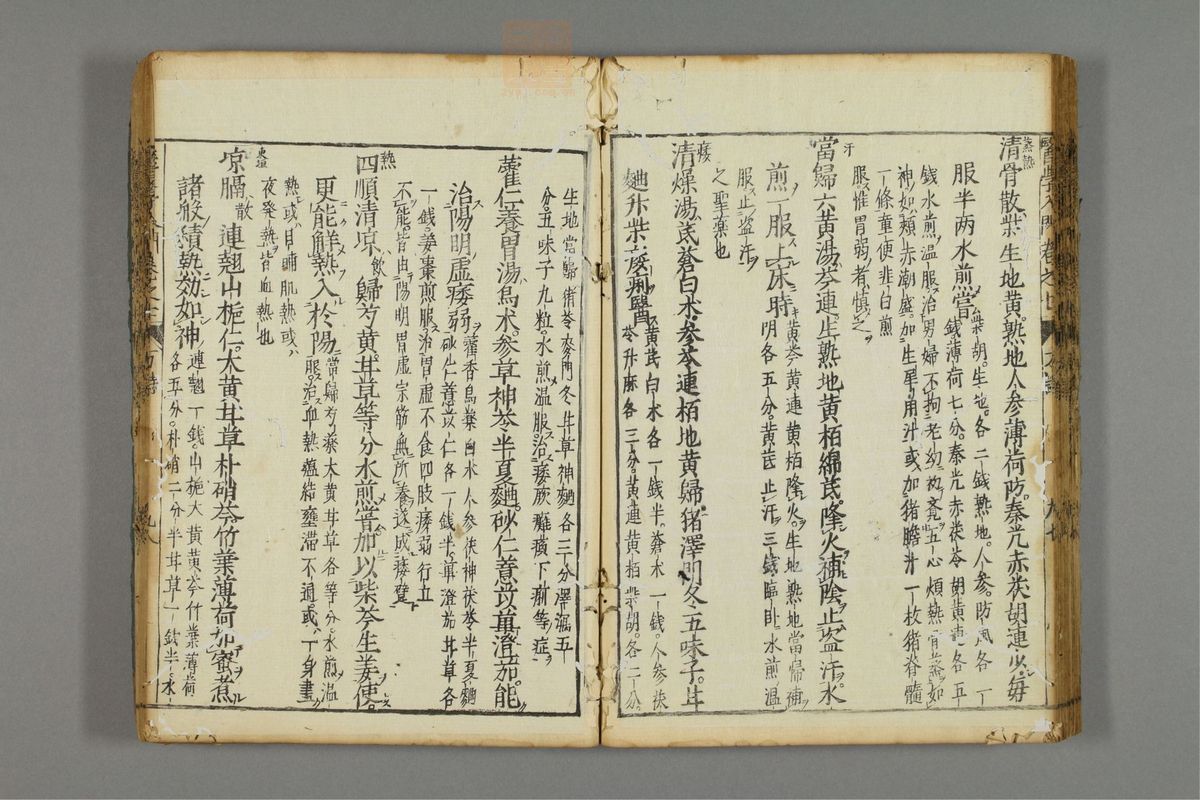 清骨散柴生地黄熟地人参薄荷防秦艽赤茯胡連少毎
服半两水煎嘗柴胡生地各二銭熟地人参防風各一
銭薄荷七分秦艽赤茯苓胡黄連各五
銭水煎温服治男婦不拘老幼五心煩熱骨蒸如
神如頬赤潮盛加生犀用汁或加猪膽汁一枚猪脊髓
一條童便韭白煎
服惟胃弱者慎之
汗
當歸六黄湯芩連生熟地黄栢綿芪降火補陰止盗汗水
煎一服上床時黄芩黄連黄栢降火生地熟地當歸補
明各五分黄芪止汗三銭臨卧水煎温
服止盗汗
之聖藥也
痿
清燥湯芪蒼白朮參苓連栢地黄歸猪澤門冬五味子甘
麯升柴痿病醫黄芪白朮各一銭半蒼朮一銭人参茯
苓升麻各三分黄連黄栢柴胡各二分
生地當歸猪苓麥門冬甘草神麯各三分澤瀉五
分五味子九粒水煎温服治痿厥癱瘓下痢等症
藿仁養胃湯烏朮参草神苓半夏麯砂仁薏苡蓽澄茄能
治陽明虚痿弱藿香烏藥白朮人参茯神茯苓半夏麯
砂仁薏苡仁各一銭半蓽澄茄甘草各
一銭姜棗煎服治胃虚不食四肢痿弱行立
不能皆由陽明胃虚宗筋無所養遂成痿躄
熱
四順清凉飲歸芍黄甘草等分水煎嘗加以柴芩生姜使
更能解熱入於陽當歸芍藥大黄甘草各等分水煎温
服治血熱蘊結壅滞不通或一身盡
熱或日晡肌熱或
夜発熱皆血熱也
凉膈散連翹山梔仁大黄甘草朴硝芩竹葉薄荷加蜜煮
諸般積熱効如神連翹一銭山梔大黄黄芩竹葉薄荷
各五分朴硝二分半甘草一銭半水